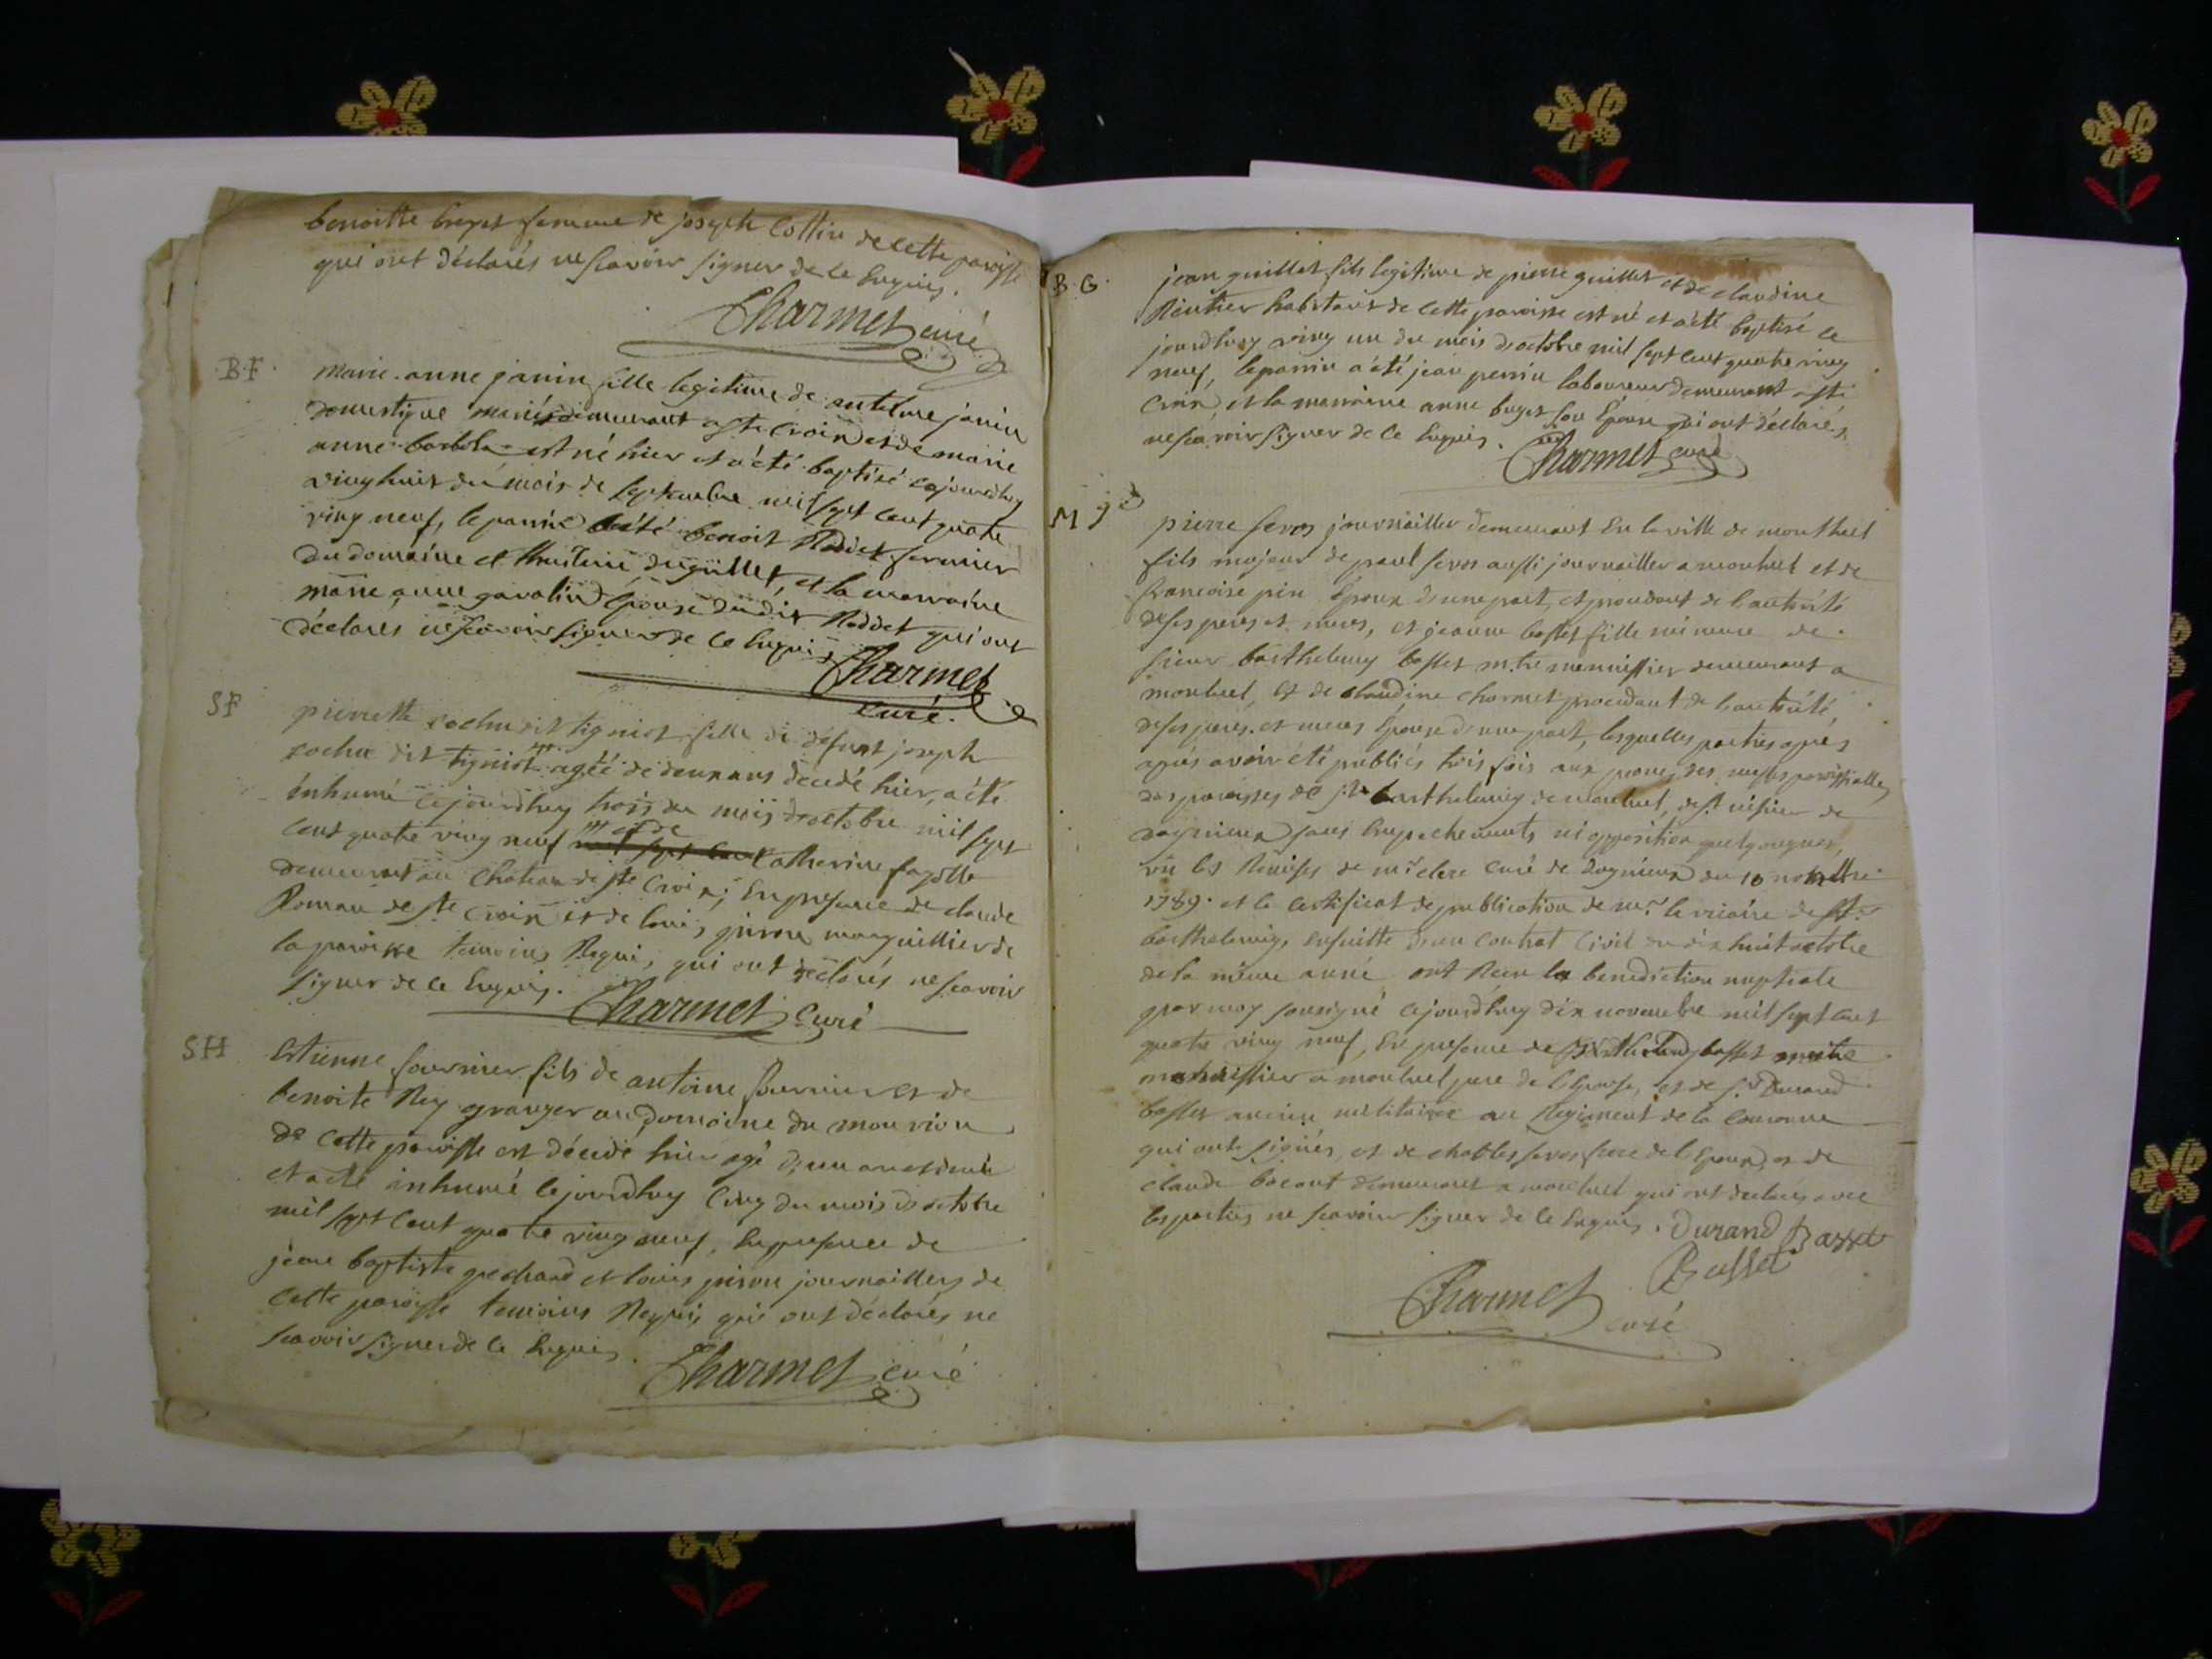 benoitte breyet femme de joseph Cottin de cette paroisse
qui ont déclarés ne scavoir signer de ce Enquis.
Charmet curé
B.F. marie anne janin fille legitime de antelme janin
domestique mariés demeurant a ste croix et de marie
anne est né hier et a été baptisé cejourdhuy
vinghuit du mois de septembre mil sept cent quatre
ving neuf, le parrin a été benoit Roddet fermier
du domaine et thuilerie du guillet, et la marraine
marie anne gavalin Epouse dudit Roddet qui ont
déclarés ne scavoir signer de ce Enquis
Charmet
curé.
S.F pierrette cochu dit tigniot fille de defunt joseph
cochu dit tigniot agéé de deux ans décédé hier, a été
inhumé cejourdhuy trois du mois d'octobre mil sept
cent quatre ving neuf et de Catherine fagotte
demeurant au Chateau de ste Croix; En presence de claude
Romau de ste Croix et de louis pivon marguillier de
la paroisse temoins Requis, qui ont déclarés ne scavoir
signer de ce Enquis. Charmet Curé
S.H Estienne fournier fils de antoine fournier et de
benoite Rey granger au domaine du mourion
de cette paroisse est décédé hier agé d'un an et demi
et a été inhumé cejourdhuy Cinq du mois d'octobre
mil sept cent quatre ving neuf, En presence de
jean baptiste pechard et louis pivon journailliers de
cette paroisse temoins Requis, qui ont déclarés ne
scavoir signer de ce Enquis.
Charmet curé
B.G. jean guillet fils legitime de pierre guillet et de claudine
Rentier habitant de cette paroisse est né et a été baptisé ce
jourdhuy ving un du mois d'octobre mil sept cent quatre ving
neuf, le parrin a été jean perrin laboureur demeurant a ste
Croix, et la marraine anne buget son Epouse qui ont déclarés
ne scavoir signer de ce Enquis.
Charmet curé
M pierre feros journailler demeurant En la ville de montluel
fils majeur de paul feros aussi journailler a montluel et de
francoise pin Epoux d'une part, et procedant de l'autorité
de ses peres et meres, et jeanne basset fille mineure de
sieur barthelemy basset m.tre menuissier demeurant a
montluel, et de claudine charmet procedant de l'autorité
de ses peres et meres Epouse d'une part, lesquelles parties apres
apres avoir été publiés trois fois aux prones des messes paroissialles
des paroisses de st barthelemy de montluel, de st nisier de
dagnieux sans Empechements ni opposition quelquonques,
vu les Remises de mr clerc curé de dagnieux du 10 novembre
1789. et le certificat de publication de mr le vicaire de st
barthelemy, ensuitte d'un contrat civil du dix huit octobre
de la même année ont Recu la benediction nuptiale
par moy sousigné cejourdhuy dix novembre mil sept cent
quatre ving neuf, En presence de barthelemy basset maitre
menuissier a montluel pere de l'Epouse, et de sr Durand
basset ancien militaire au Regiment de la Couronne
qui ont signés, et de feros frere de l'Epoux, et de
claude demeurant a montluel qui ont declarés avec
les parties ne scavoir signer de ce Enquis. Durand Basset
Basset
Charmet
curé